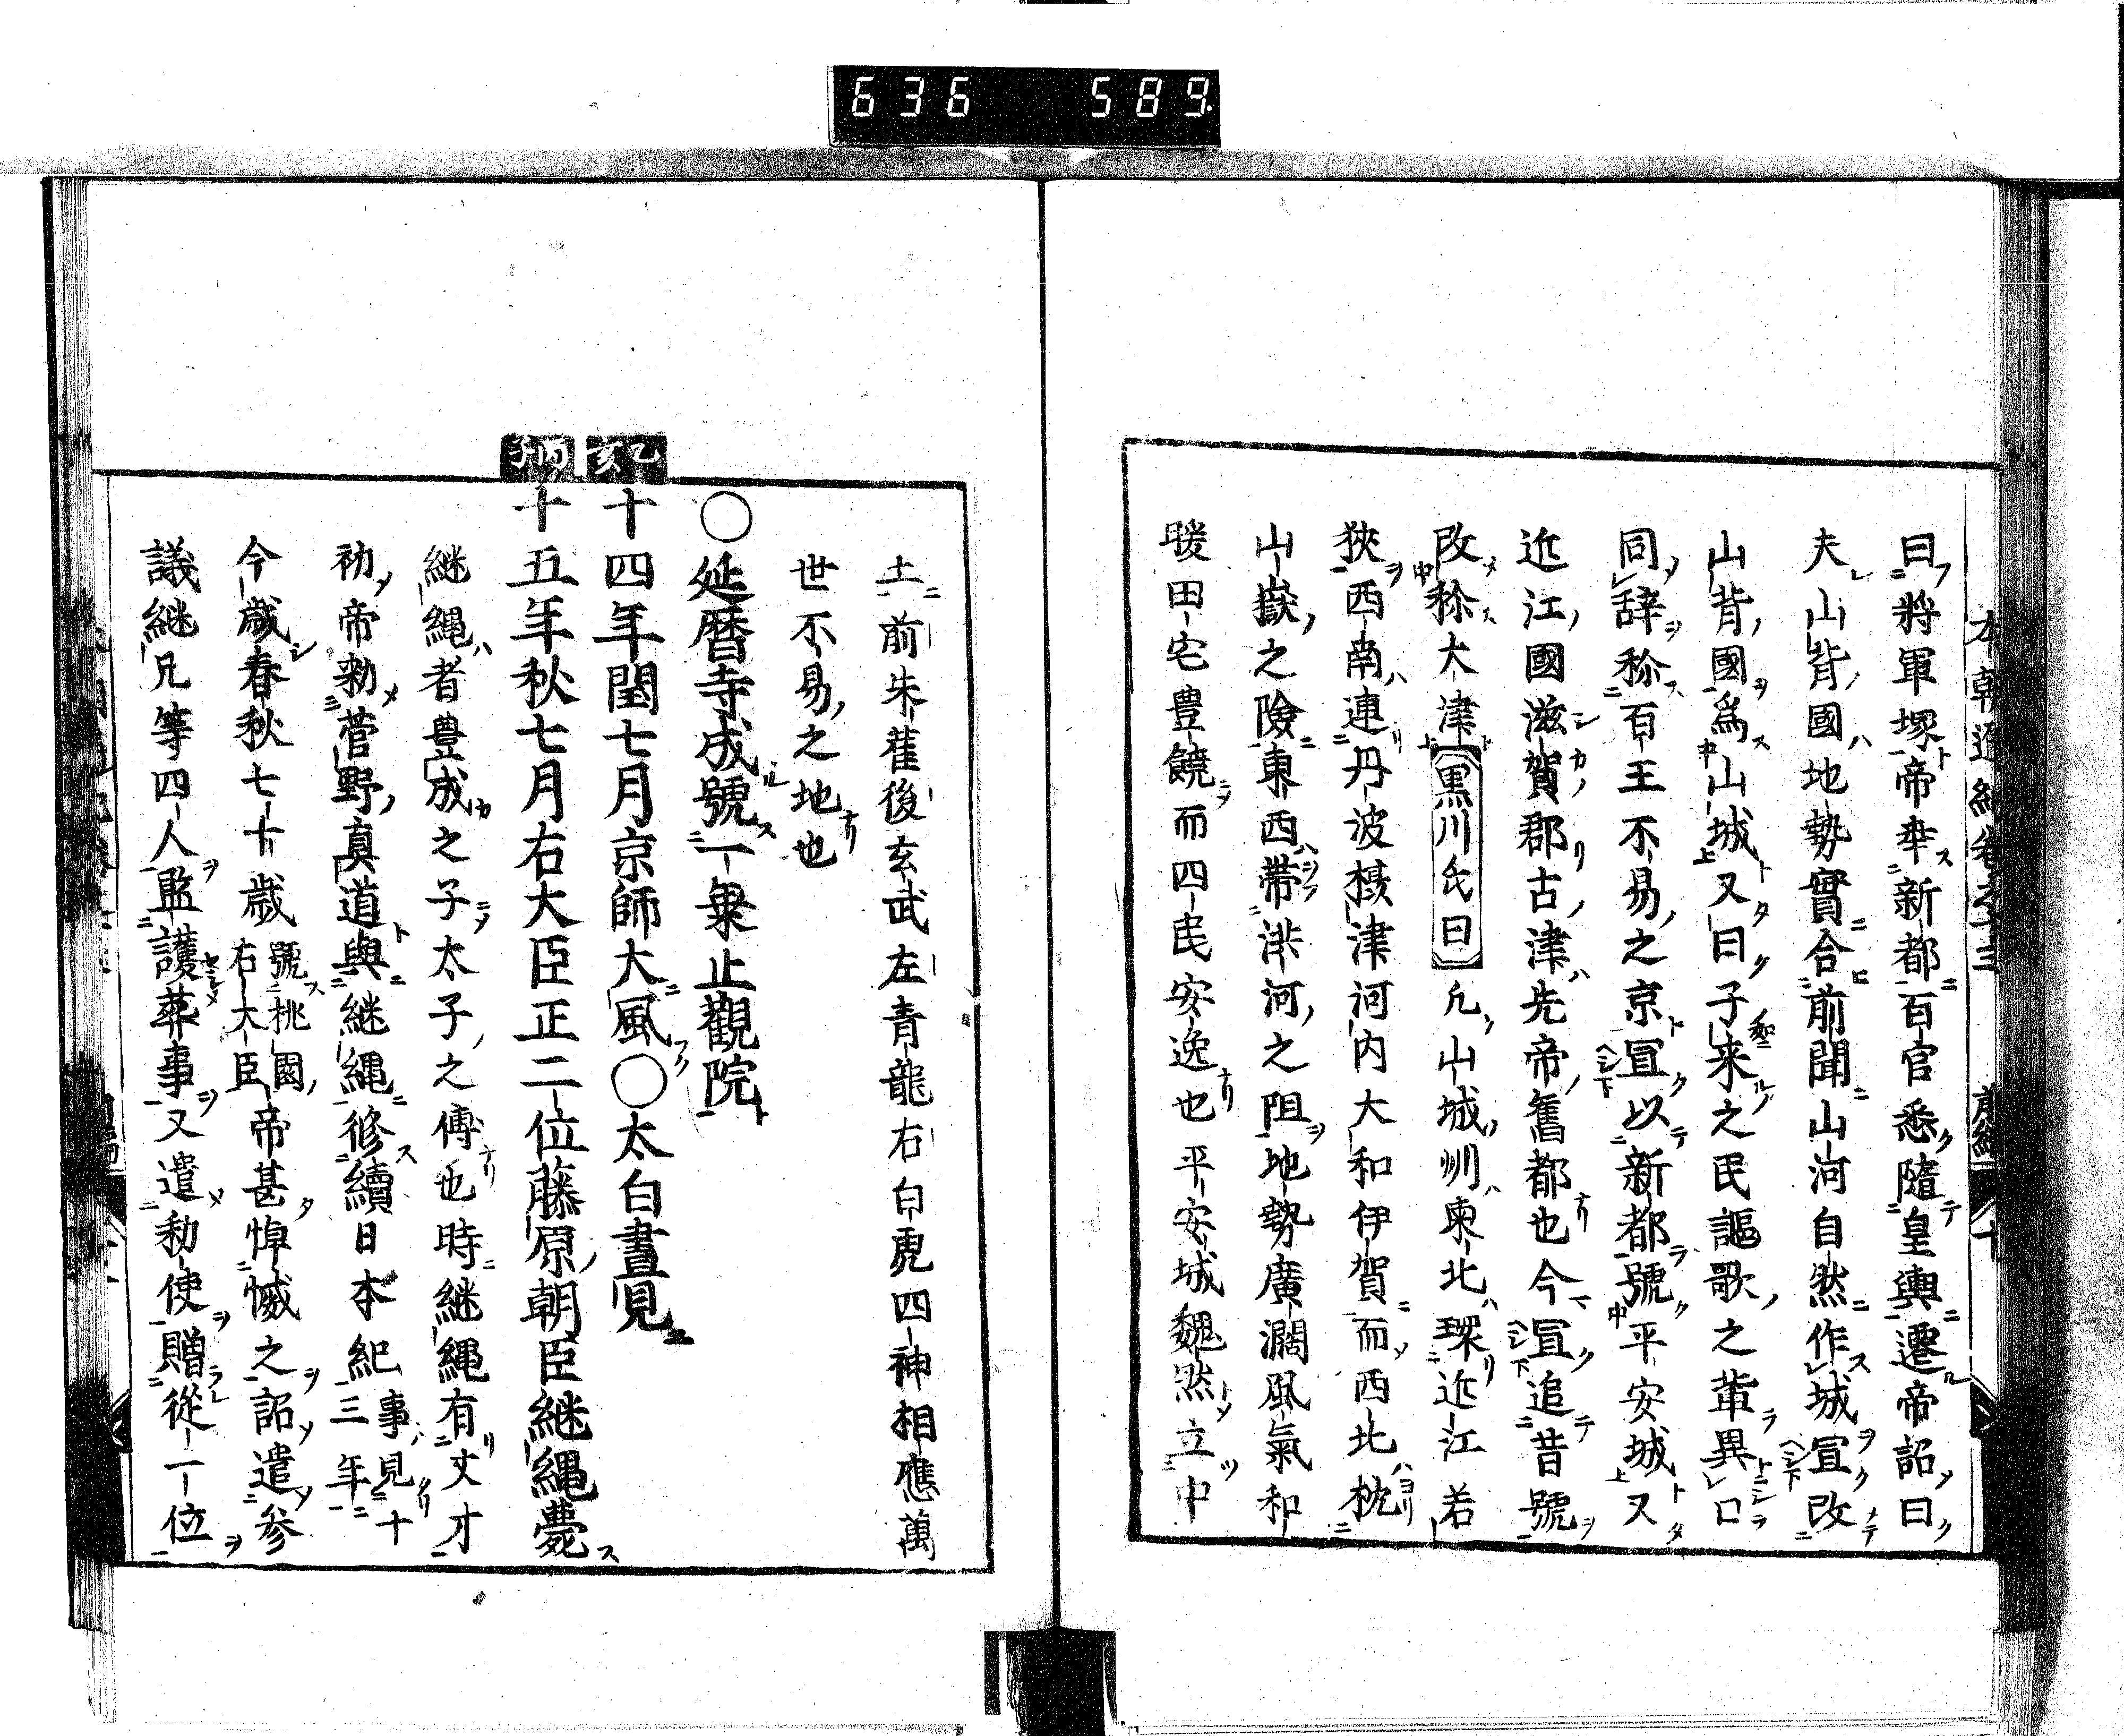 636 589
曰將軍塚帝幸新都百官悉隨皇輿遷帝詔曰
夫山背國地勢實合前聞山河自然作城宜改
山背國爲山城又曰子来之民謳歌之軰異口
同辞称百王不易之京宜以新都號平安城又
近江國滋賀郡古津先帝舊都也今宜追昔號
改称大津黒川氏曰凡山城州東北隣近江若
狹西南連丹波摂津河内大和伊賀而西北枕
山嶽之險東西帯洪河之阻地勢廣濶風氣和
暖田宅豊饒而四民安逸也平安城巍然立中
乙亥
丙子
土前朱雀後玄武左青龍右白虎四神相應萬
世不易之地也
〇延暦寺成號一乗止觀院
十四年閏七月京師大風〇太白晝見
十五年秋七月右大臣正二位藤原朝臣継縄薨
継縄者豊成之子太子之傅也時継縄有文才
初帝勅菅野真道與継縄修續日本紀事見十三年
今歳春秋七十歳號桃園右大臣帝甚悼慽之詔遣参
議継兄等四人監護葬事又遣勅使贈從一位